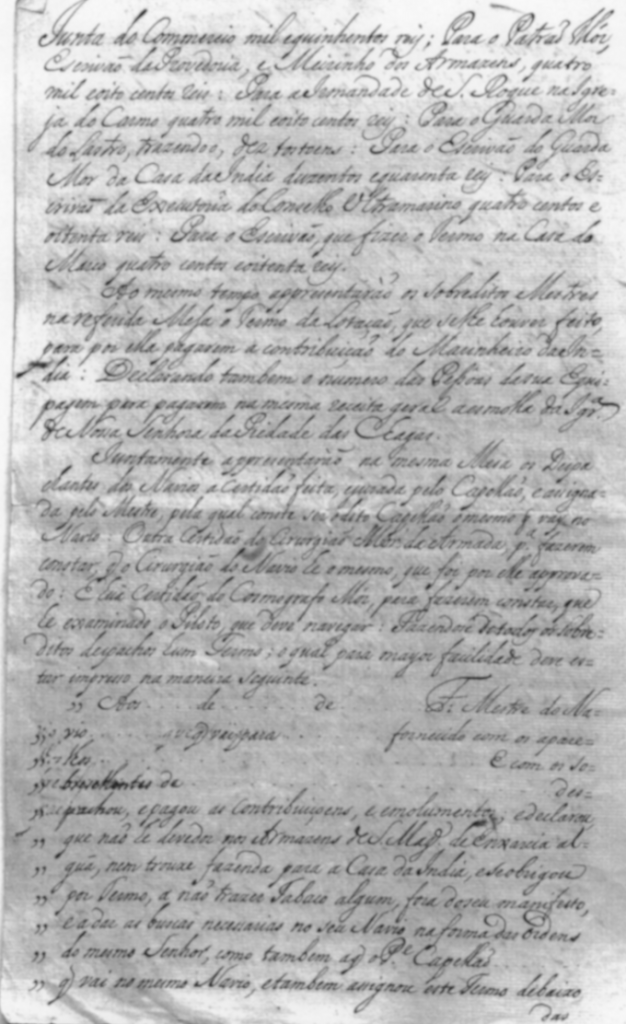 Junta do Commercio mil equinhentos reis; Para o Patraõ Mór,
Escrivaõ da Provedoria, e Meirinho dos Armazens, quatro
mil eoito centos reis: Para a Irmandade de S. Roque na Igre-
ja do Carmo quatro mil eoito centos reis: Para o Guarda Mor
do Lastro, trazendo o, dez tostoens: Para o Escrivaõ do Guarda
Mor da Casa da India duzentos equarenta reis: Para o Es-
crivaõ da Executoria do Conselho Ultramarino quatro centos e
oitenta reis: Para o Escrivaõ, que fizer o Termo na Casa do
Marco quatro centos eoitenta reis.
Ao mesmo tempo appresentaraõ os sobreditos Mestres
na referida Mesa o Termo da Lotaçaõ, que selhe houver feito,
para por ella pagarem a contribuiçaõ do Marinheiro da In-
dia: Declarando tambem o numero das Pessoas da sua Equi-
pagem para pagarem na mesma receita geral a esmolla da Igr.ª
de Nossa Senhora da Piedade das Chagas.
Juntamente appresentaraõ na mesma Mesa os Despa
chantes dos Navios a Certidaõ feita, ejurada pelo Capellaõ, e assigna-
da pelo Mestre, pela qual conste ser o dito Capellaõ o mesmo q̃ vay no
Navio: Outra Certidaõ do Cirurgiaõ Mór da Armada, p.ª fazerem
constar, q̃ o Cirurgiaõ do Navio he o mesmo, que foi por elle approva-
do: E hua Certidaõ do Cosmografo Mór, para fazerem constar, que
he examinado o Piloto, que deve navegar: Fazendose de todos os sobre-
ditos despachos hum Termo; o qual para mayor facilidade deve es-
tar impresso na maneira seguinte.
" Aos de de F. Mestre do Na-
" vio q̃ vai para fornecido com os apare-
" lhos E com os so-
" bresellentes de des-
" pachou, epagou as Contribuiçoens, e emolumentos; edeclarou
" que naõ he devedor nos Armazens de S. Mag.de de enxarcia al-
" gũa, nem trouxe fazenda para a Casa da India, ese obrigou
" por Termo, a naõ trazer Tabaco algum, fora do seu manifesto,
" e a dar as buscas necessarias no seu Navio na forma das Ordens
" do mesmo Senhor, como tambem aq̃ o P.e Capellaõ
" q̃ vai no mesmo Navio, etambem assignou este Termo debaixo
das